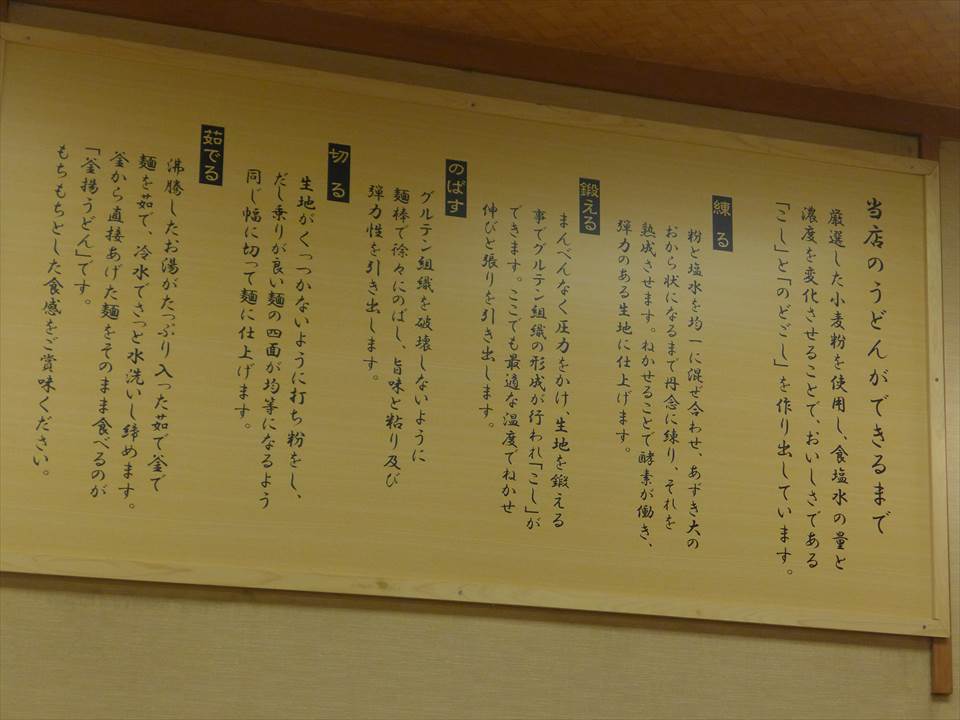 当店のうどんができるまで
厳選した小麦粉を使用し、食塩水の量と
濃度を変化させることで、おいしさである
「こし」と「のどごし」を作り出しています。
練る
粉と塩水を均一に混ぜ合わせ、あずき大の
おから状になるまで丹念に練り、それを
熟成させます。ねかせることで酵素が働き、
弾力のある生地に仕上げます。
鍛える
まんべんなく圧力をかけ、生地を鍛える
事でグルテン組織の形成が行われ「こし」が
できます。ここでも最適な温度でねかせ
伸びと張りを引き出します。
のばす
グルテン組織を破壊しないように
麺棒で徐々にのばし、旨味と粘り及び
弾力性を引き出します。
切る
生地がくっつかないように打ち粉をし、
だし乗りが良い麺の四面が均等になるよう
同じ幅に切って麺に仕上げます。
茹でる
沸騰したお湯がたっぷり入った茹で釜で
麺を茹で、冷水でさっと水洗いし締めます。
釜から直接あげた麺をそのまま食べるのが
「釜揚うどん」です。
もちもちとした食感をご賞味ください。